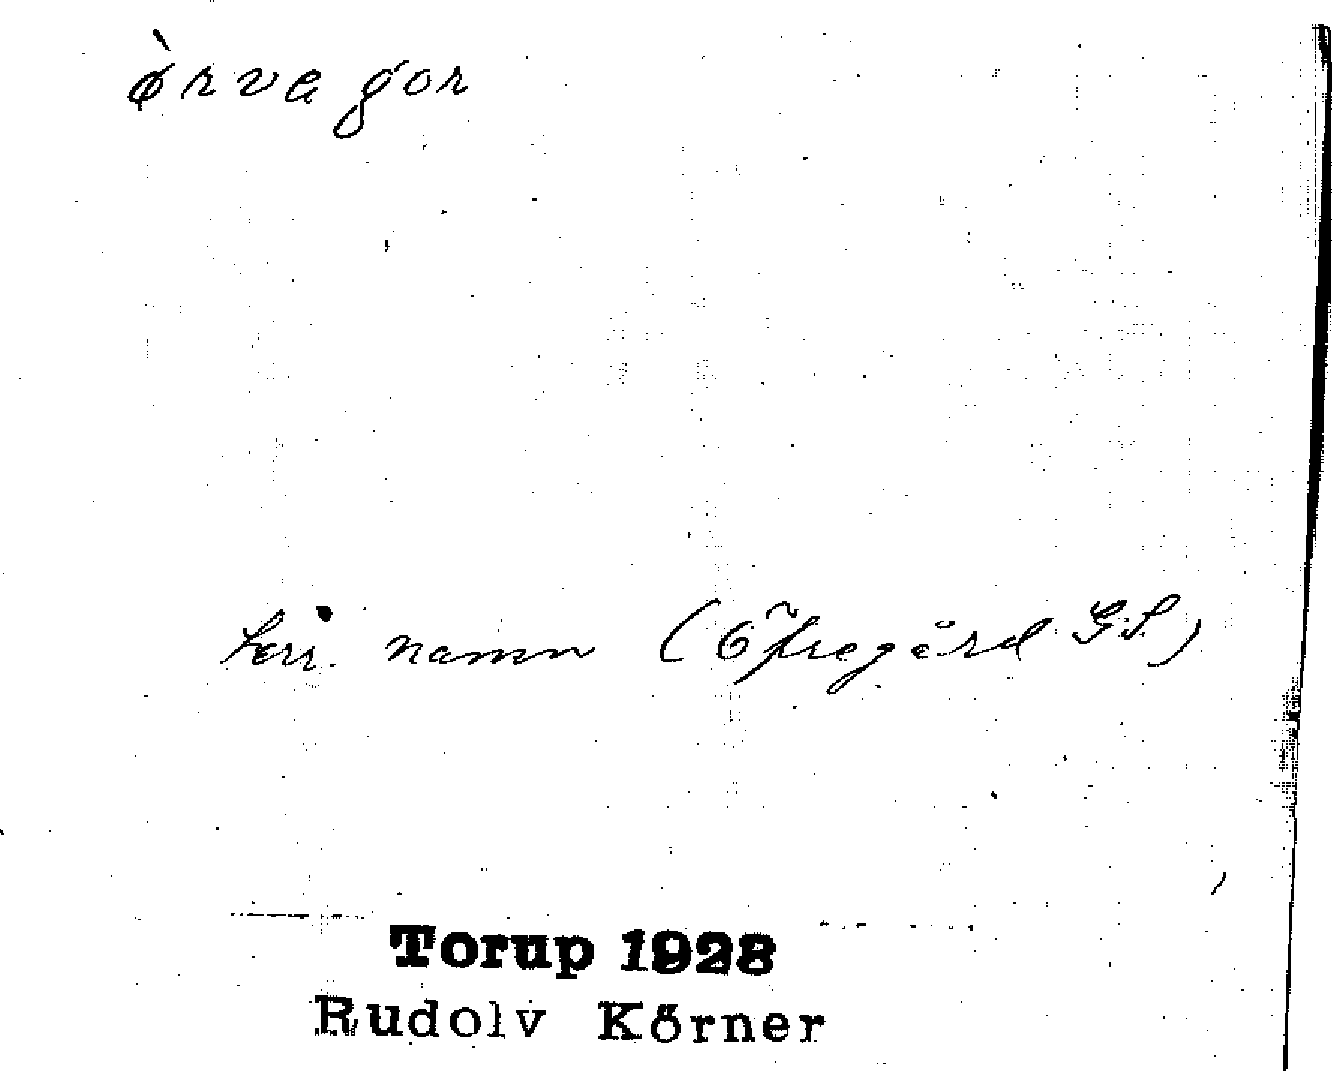 ø̀rvagor
terr. namn (Öfregård GS)
Torup 1928
Rudolv Körner